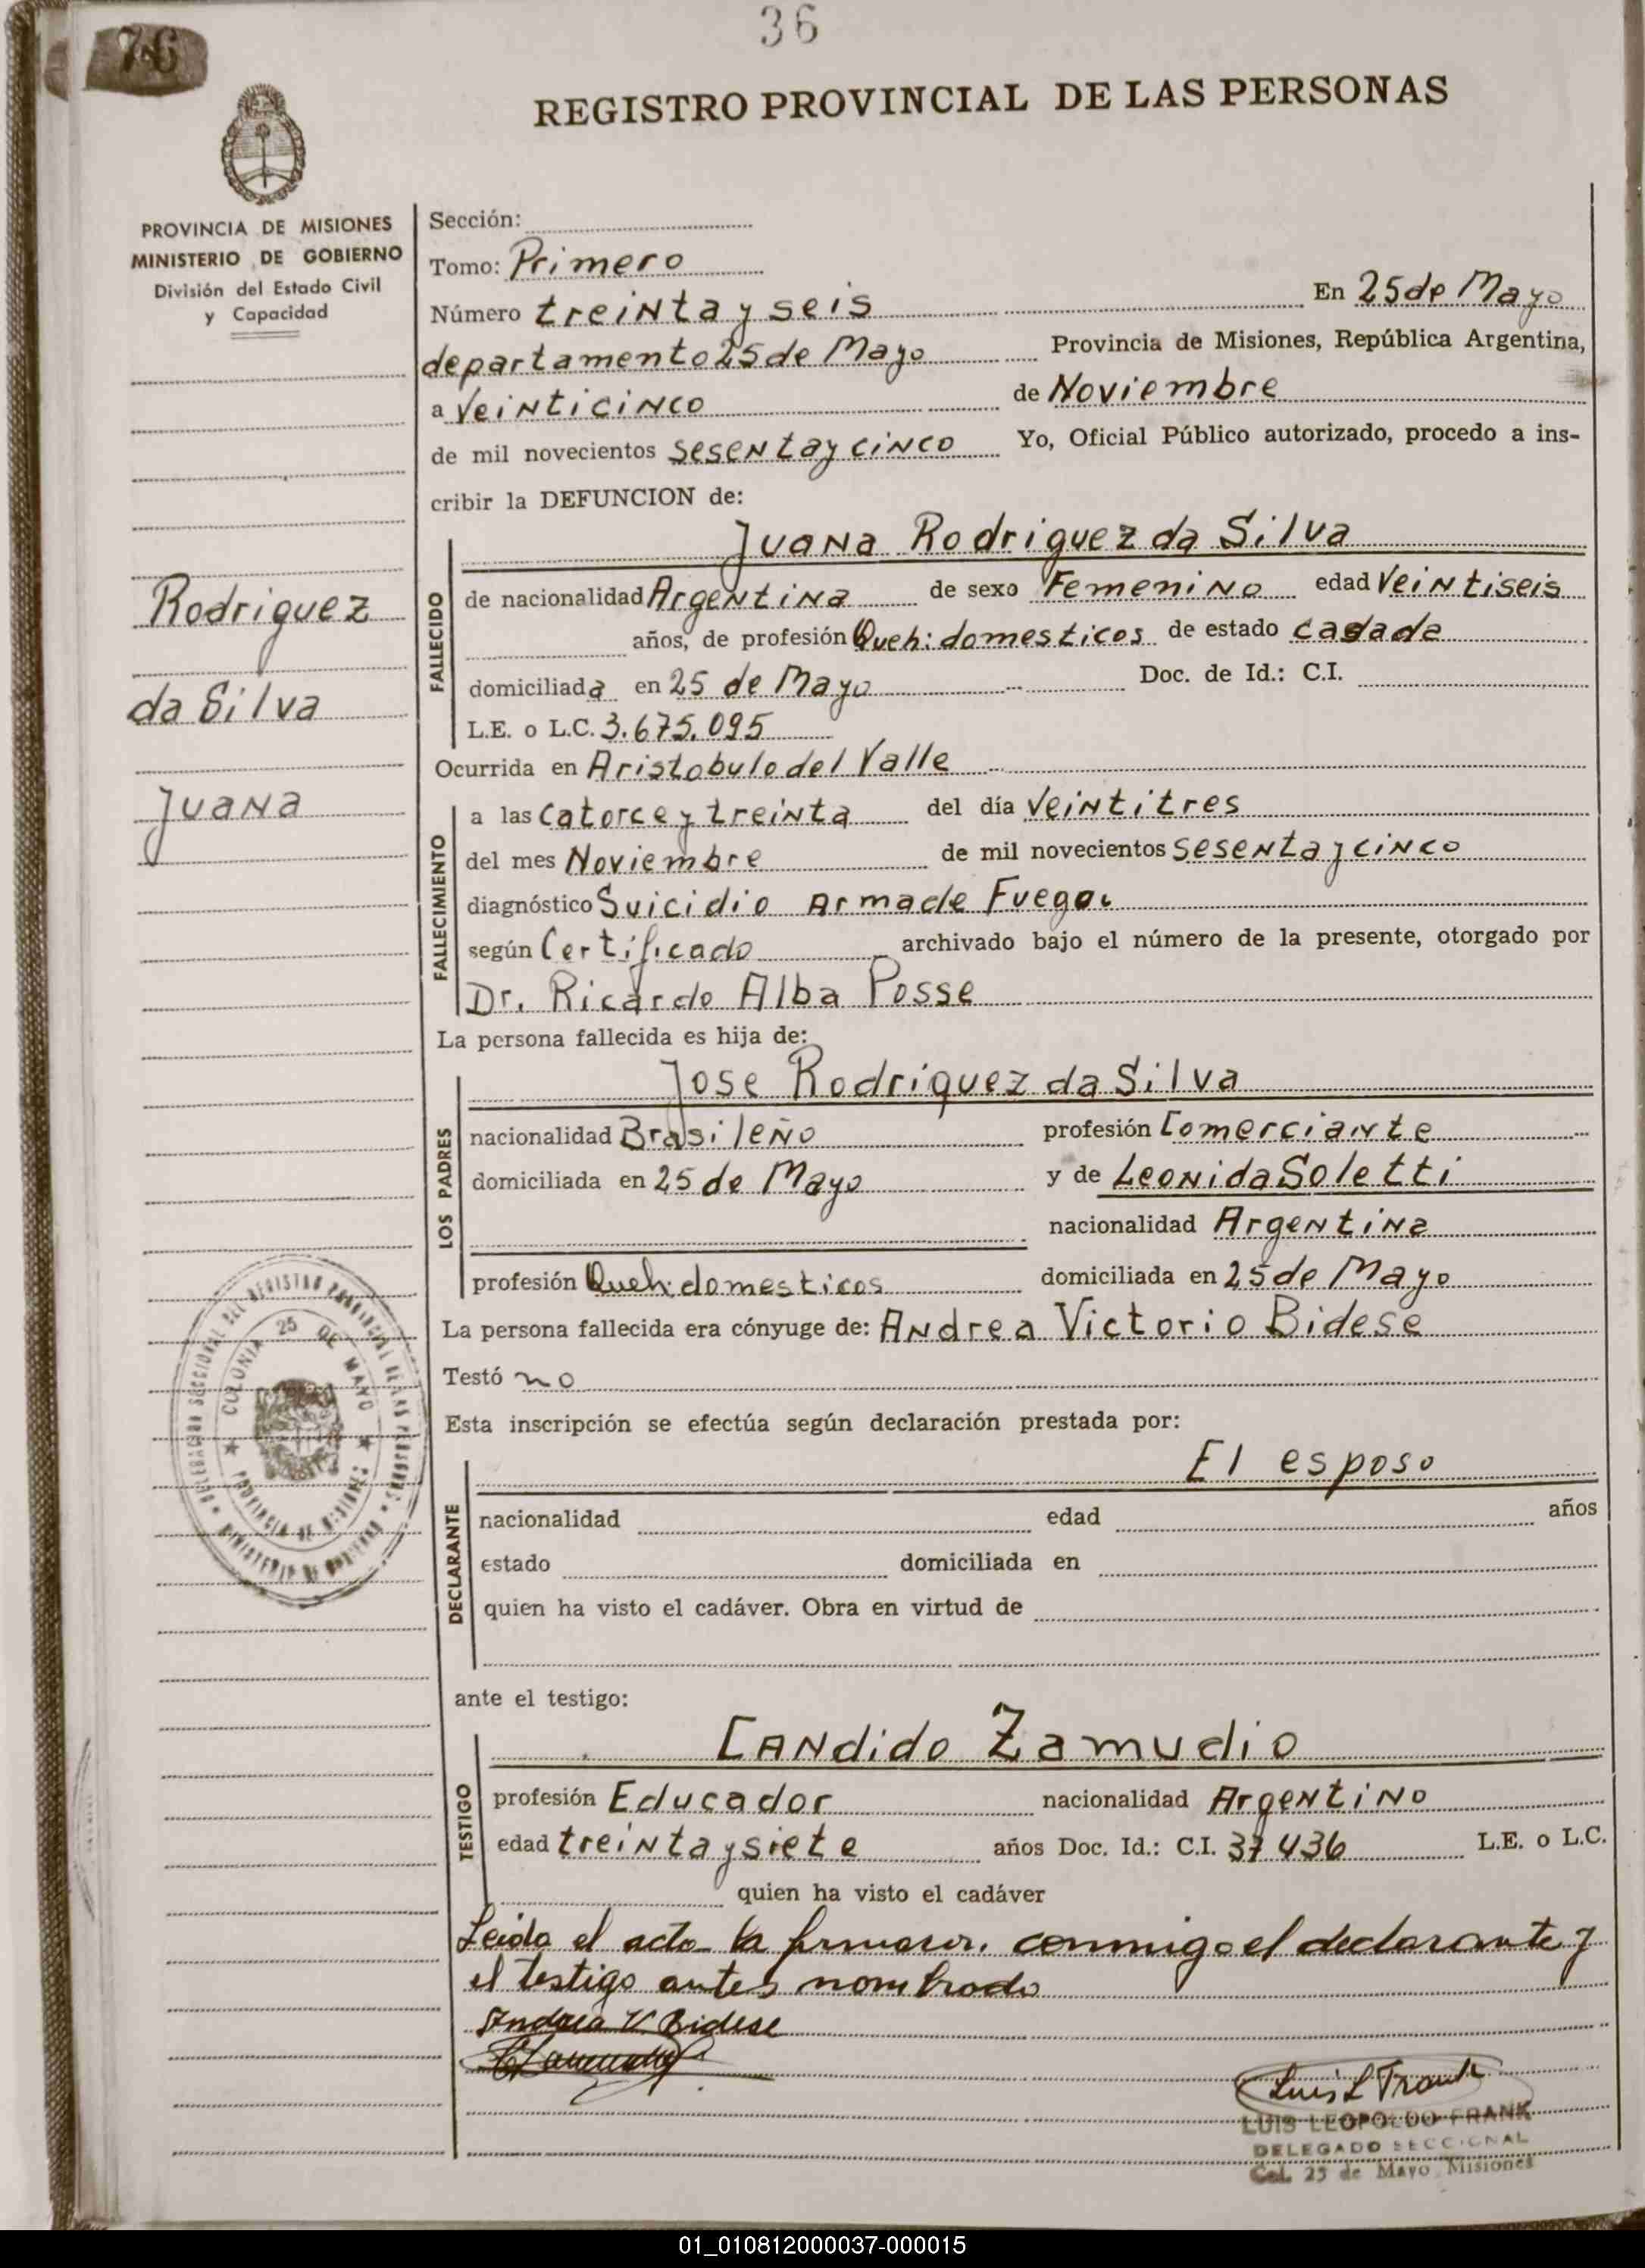 36
76
REGISTRO PROVINCIAL DE LAS PERSONAS
PROVINCIA DE MISIONES
MINISTERIO DE GOBIERNO
División del Estado Civil
y Capacidad
Rodriguez
da Silva
Juana
Sección:
Tomo: Primero
Número treinta y seis En 25 de Mayo
departamento 25 de Mayo Provincia de Misiones, República Argentina,
a Veinticinco de Noviembre
de mil novecientos sesenta y cinco Yo, Oficial Público autorizado, procedo a ins-
cribir la DEFUNCION de:
Juana Rodriguez da Silva
FALLECIDO
de nacionalidad Argentina de sexo Femenino edad Veintiseis
años, de profesión Queh: domesticos de estado casada
domiciliada en 25 de Mayo Doc. de Id.: C.I.
L.E. o L.C. 3.675.095
Ocurrida en Aristobulo del Valle
FALLECIMIENTO
a las catorce y treinta del día Veintitres
del mes Noviembre de mil novecientos sesenta y cinco
diagnóstico Suicidio Arma de Fuego.
según Certificado archivado bajo el número de la presente, otorgado por
Dr. Ricardo Alba Posse
La persona fallecida es hija de:
Jose Rodriguez da Silva
LOS PADRES
nacionalidad Brasileño profesión Comerciante
domiciliada en 25 de Mayo y de Leonida Soletti
nacionalidad Argentina
profesión Queh: domesticos domiciliada en 25 de Mayo
La persona fallecida era cónyuge de: Andrea Victorio Bidese
Testó no
Esta inscripción se efectúa según declaración prestada por:
El esposo
DECLARANTE
nacionalidad edad años
estado domiciliada en
quien ha visto el cadáver. Obra en virtud de
ante el testigo:
Candido Zamudio
TESTIGO
profesión Educador nacionalidad Argentino
edad treinta y siete años Doc. Id.: C.I. 37436 L.E. o L.C.
quien ha visto el cadáver
Leida el acta la firmaron conmigo el declarante y
el testigo antes nombrado
Andrea V Bidese
Luis L Frank
LUIS LEOPOLDO FRANK
DELEGADO SECCIONAL
Col. 25 de Mayo Misiones
DELEGACION SECCIONAL DEL REGISTRO PROVINCIAL DE LAS PERSONAS
COLONIA 25 DE MAYO
PROVINCIA DE MISIONES
MINISTERIO DE GOBIERNO
01_010812000037-000015